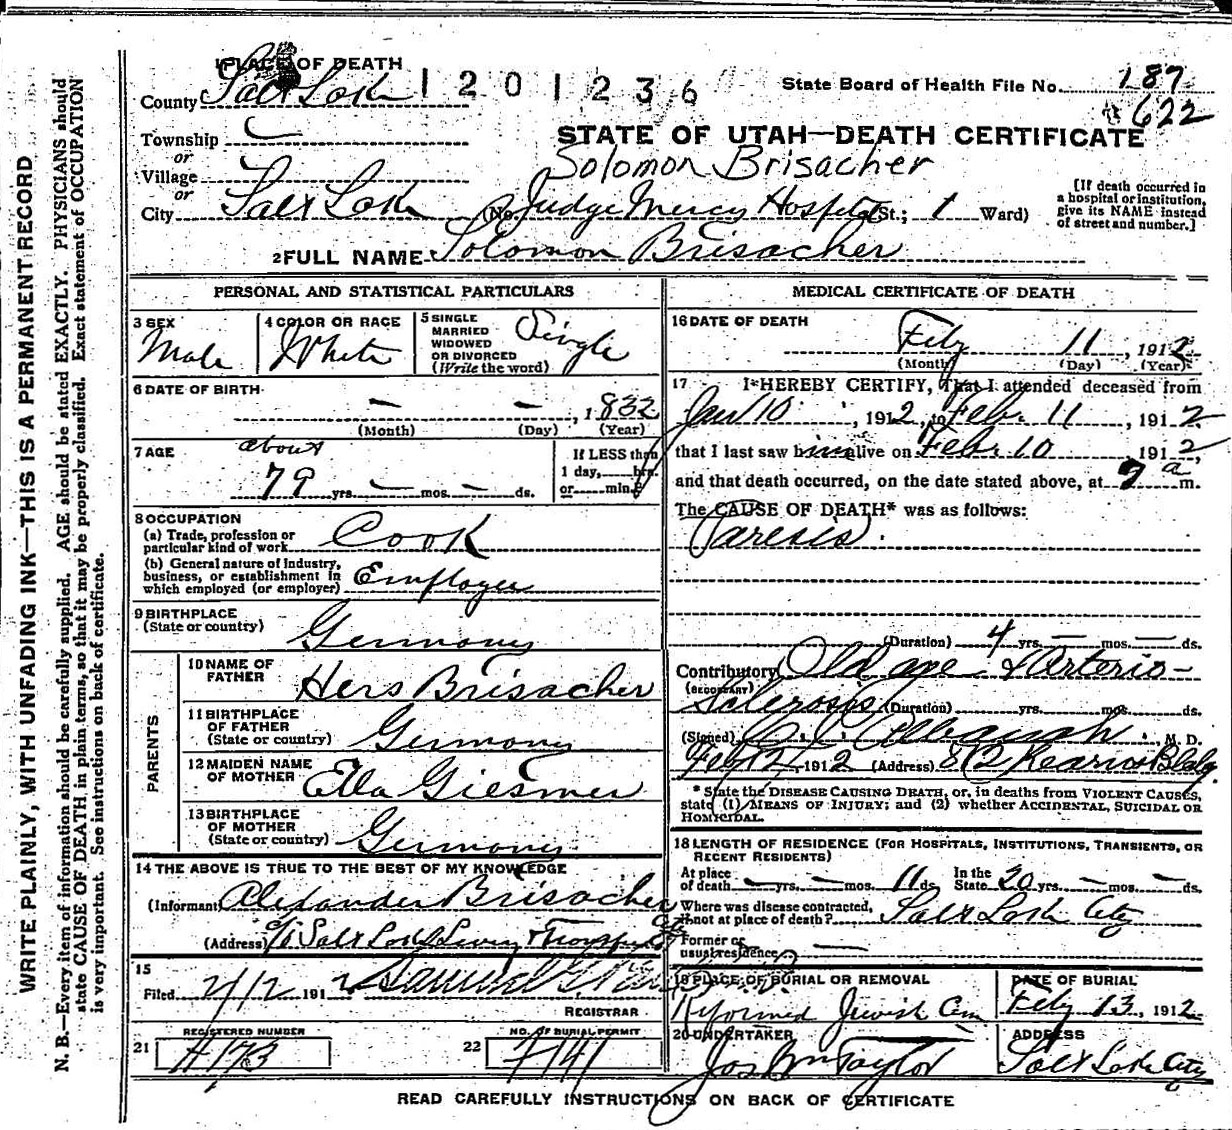 WRITE PLAINLY, WITH UNFADING INK—THIS IS A PERMANENT RECORD
N. B.—Every item of information should be carefully supplied. AGE should be stated EXACTLY. PHYSICIANS should
state CAUSE OF DEATH in plain terms, so that it may be properly classified. Exact statement of OCCUPATION
is very important. See instructions on back of certificate.
1 PLACE OF DEATH
County Salt Lake
1201236
State Board of Health File No. 187
622
Township
or
Village
or
City Salt Lake
STATE OF UTAH—DEATH CERTIFICATE
Solomon Brisacher
(No. Judge Mercy Hospital St.; 1 Ward)
[If death occurred in
a hospital or institution,
give its NAME instead
of street and number.]
2 FULL NAME Solomon Brisacher
PERSONAL AND STATISTICAL PARTICULARS
3 SEX
Male
4 COLOR OR RACE
White
5 SINGLE
MARRIED
WIDOWED
OR DIVORCED
(Write the word)
Single
6 DATE OF BIRTH
— — , 1832
(Month) (Day) (Year)
7 AGE
about
79 yrs. — mos. — ds.
If LESS than
1 day, hrs.
or min.?
8 OCCUPATION
(a) Trade, profession or
particular kind of work Cook
(b) General nature of Industry,
business, or establishment in
which employed (or employer) Employee
9 BIRTHPLACE
(State or country)
Germany
PARENTS
10 NAME OF
FATHER
Hers Brisacher
11 BIRTHPLACE
OF FATHER
(State or country)
Germany
12 MAIDEN NAME
OF MOTHER
Ella Giesmer
13 BIRTHPLACE
OF MOTHER
(State or country)
Germany
14 THE ABOVE IS TRUE TO THE BEST OF MY KNOWLEDGE
(Informant) Alexander Brisacher
(Address) c/o Salt Lake Livery &
15
Filed 2/12 1912 Samuel G.
REGISTRAR
REGISTERED NUMBER
21 H173
NO. OF BURIAL PERMIT
22 7141
MEDICAL CERTIFICATE OF DEATH
16 DATE OF DEATH
Feby 11, 1912
(Month) (Day) (Year)
17 I HEREBY CERTIFY, That I attended deceased from
Jan 10, 1912, to Feb. 11, 1912
that I last saw him alive on Febr. 10 1912,
and that death occurred, on the date stated above, at 9 a m.
The CAUSE OF DEATH* was as follows:
Paresis.
(Duration) 4 yrs. — mos. — ds.
Contributory Old age & Arterio-
(SECONDARY)
Sclerosis (Duration) yrs. mos. ds.
(Signed) Albaugh, M. D.
Feb 12 1912 (Address) 812 Kearns Bldg.
* State the DISEASE CAUSING DEATH, or, in deaths from VIOLENT CAUSES,
state (1) MEANS OF INJURY; and (2) whether ACCIDENTAL, SUICIDAL OR
HOMICIDAL.
18 LENGTH OF RESIDENCE (FOR HOSPITALS, INSTITUTIONS, TRANSIENTS, OR
RECENT RESIDENTS)
At place
of death — yrs. — mos. 11 ds.
In the
State 20 yrs. — mos. — ds.
Where was disease contracted,
if not at place of death? Salt Lake City
Former or
usual residence —
19 PLACE OF BURIAL OR REMOVAL
Reformed Jewish Cem
DATE OF BURIAL
Feby 13, 1912
20 UNDERTAKER
Jos Wm Taylor
ADDRESS
Salt Lake City
READ CAREFULLY INSTRUCTIONS ON BACK OF CERTIFICATE